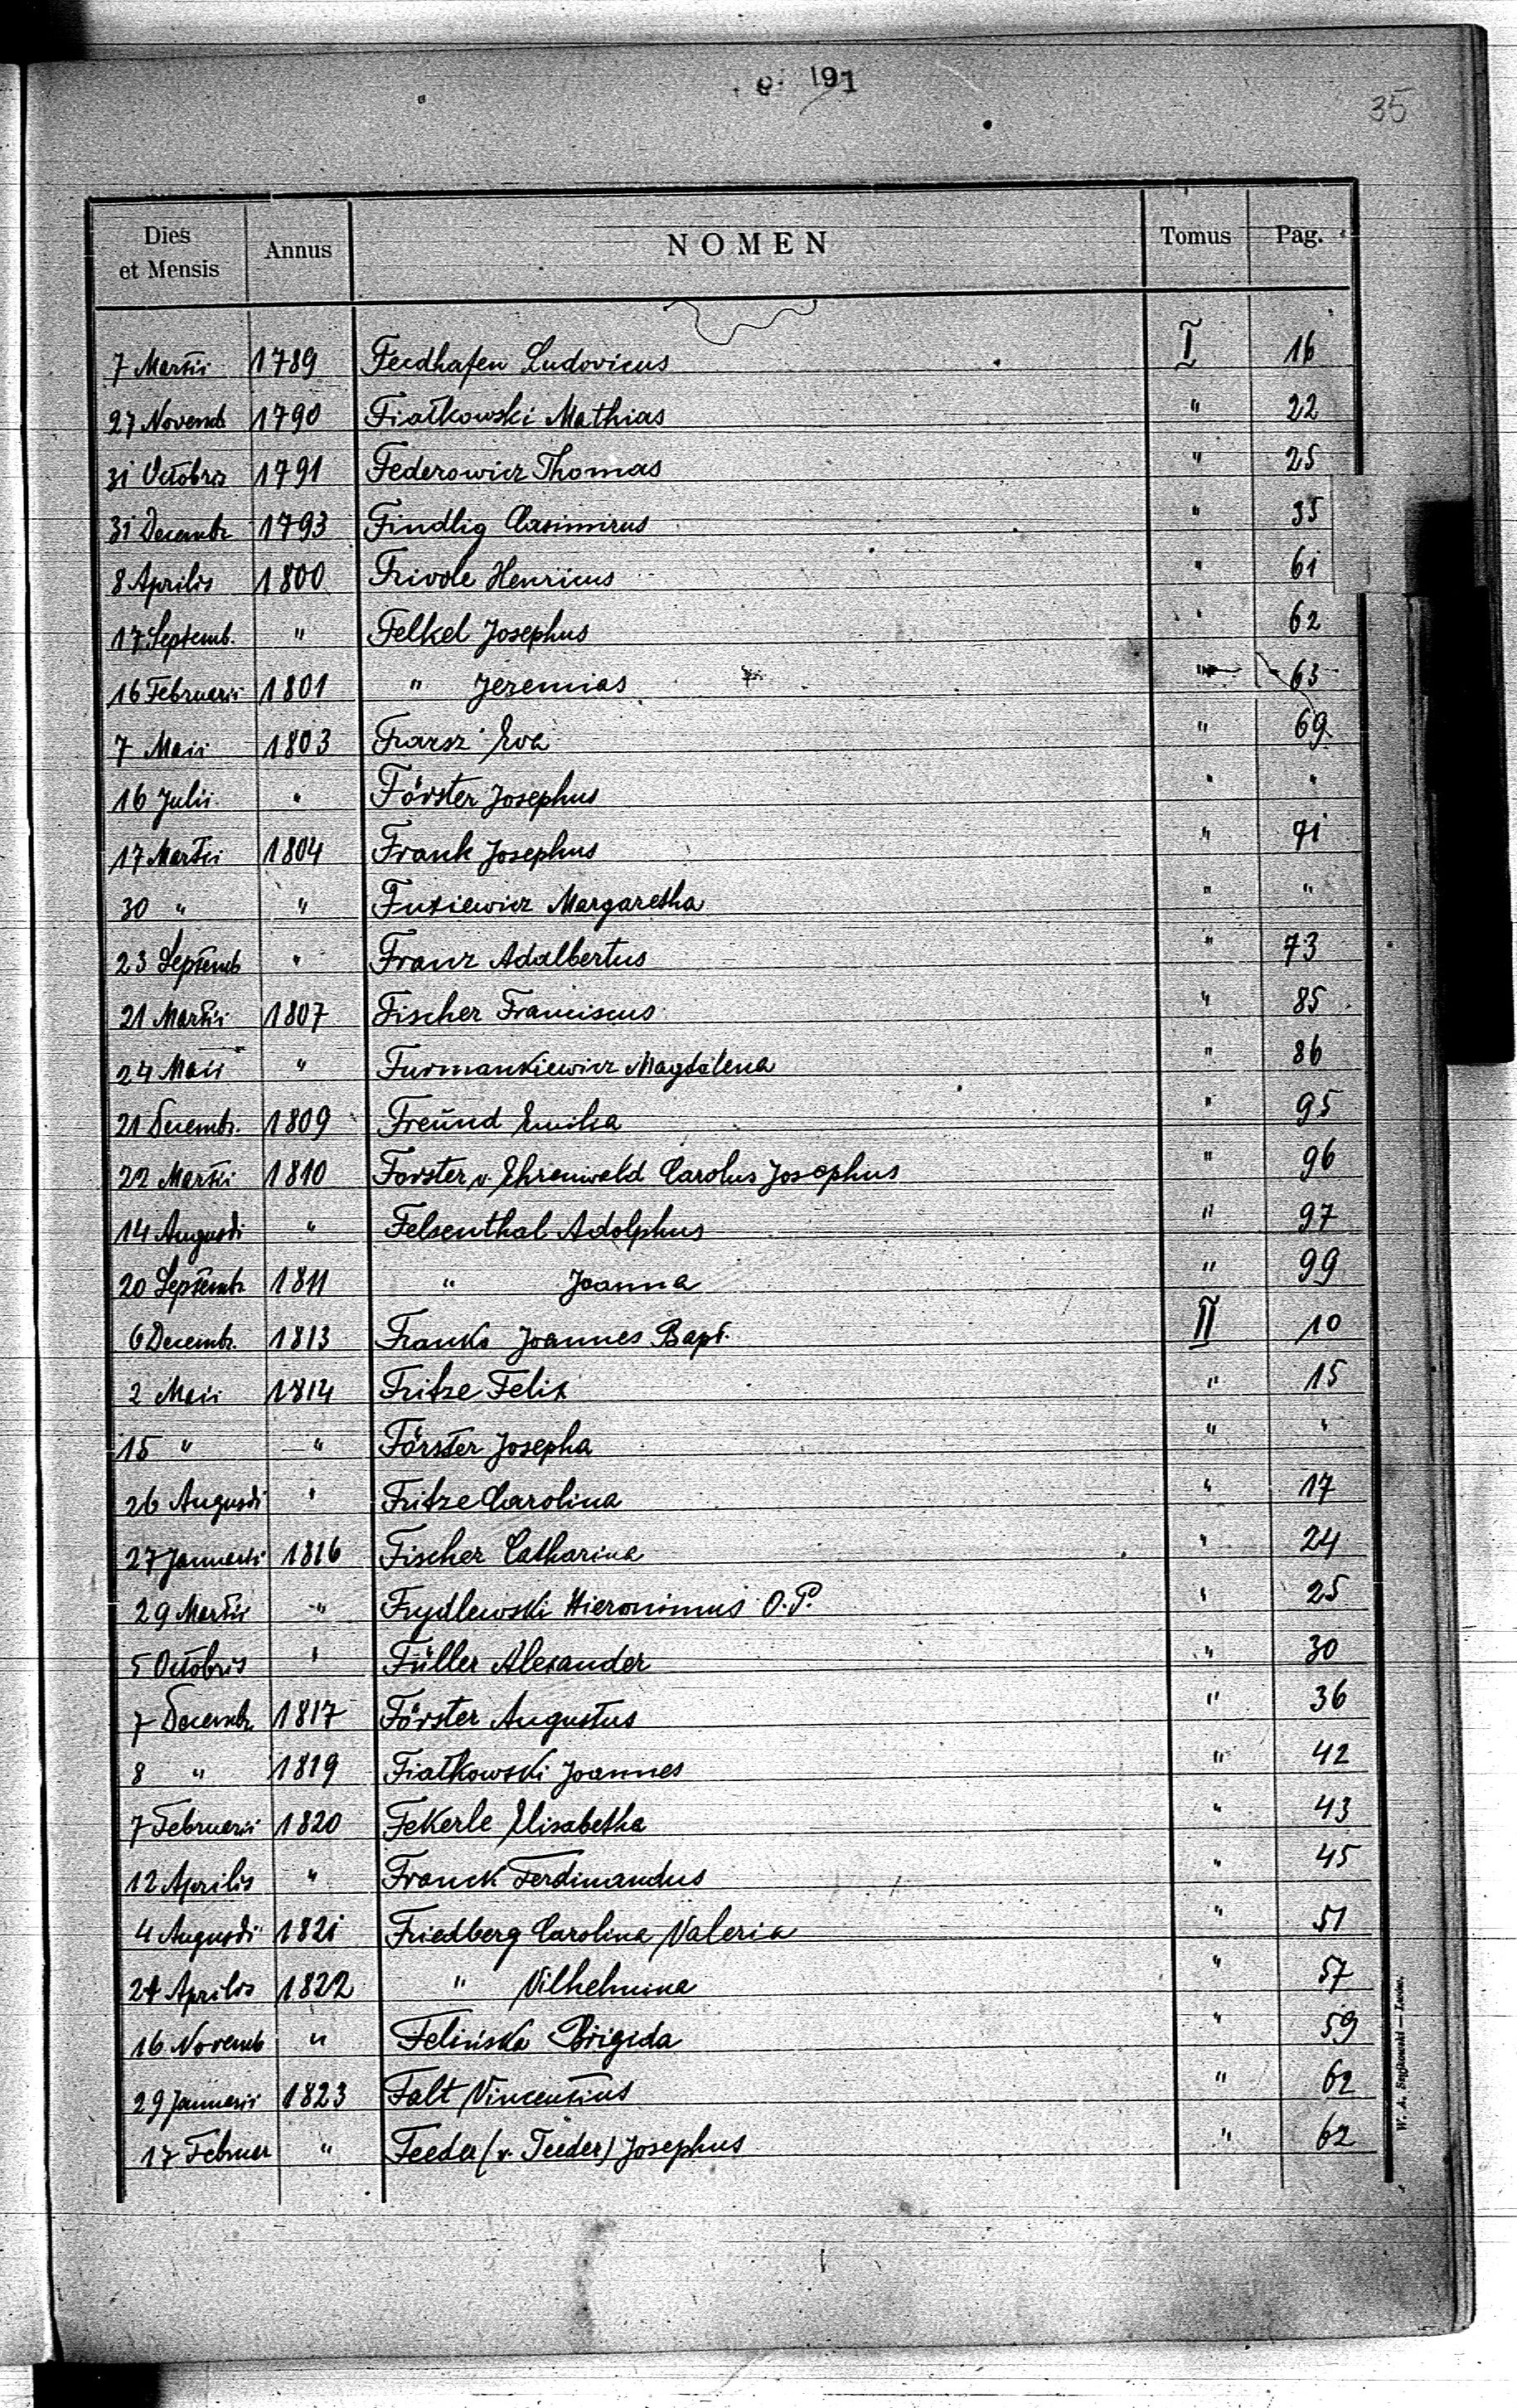 191
35
Dies et Mensis Annus NOMEN Tomus Pag.
7 Martii 1789 Feedhafen Ludovicus I 16
27 Novemb 1790 Fiałkowski Mathias " 22
31 Octobris 1791 Federowicz Thomas " 25
31 Decembr 1793 Findlig Casimirus " 35
8 Aprilis 1800 Frivole Henricus " 61
17 Septemb. " Felkel Josephus " 62
16 Februarii 1801 " Jeremias " 63
7 Maii 1803 Frarsz Eva " 69
16 Julii " Förster Josephus " "
17 Martii 1804 Frank Josephus " 71
30 " " Fuxiewicz Margaretha " "
23 Septemb " Franz Adalbertus " 73
21 Martii 1807 Fischer Franciscus " 85
24 Maii " Furmankiewicz Magdalena " 86
21 Decembr. 1809 Freund Emilia " 95
22 Martii 1810 Forster v. Ehrenwald Carolus Josephus " 96
14 Augusti " Felsenthal Adolphus " 97
20 Septembr 1811 " Joanna " 99
6 Decembr. 1813 Franko Joannes Bapt. II 10
2 Maii 1814 Fritze Felix " 15
15 " " Förster Josepha " "
26 Augusti " Fritze Carolina " 17
27 Januarii 1816 Fischer Catharina " 24
29 Martii " Frydlewski Hieronimus O.P. " 25
5 Octobris " Füller Alexander " 30
7 Decembr 1817 Förster Augustus " 36
8 " 1819 Fiałkowski Joannes " 42
7 Februarii 1820 Fekerle Elisabetha " 43
12 Aprilis " Franck Ferdinandus " 45
4 Augusti 1821 Friedberg Carolina Valeria " 51
24 Aprilis 1822 " Vilhelmina " 57
16 Novemb " Felińska Brigida " 59
29 Januarii 1823 Falt Vincentius " 62
17 Februar " Feeder (v. Teeder) Josephus " 62